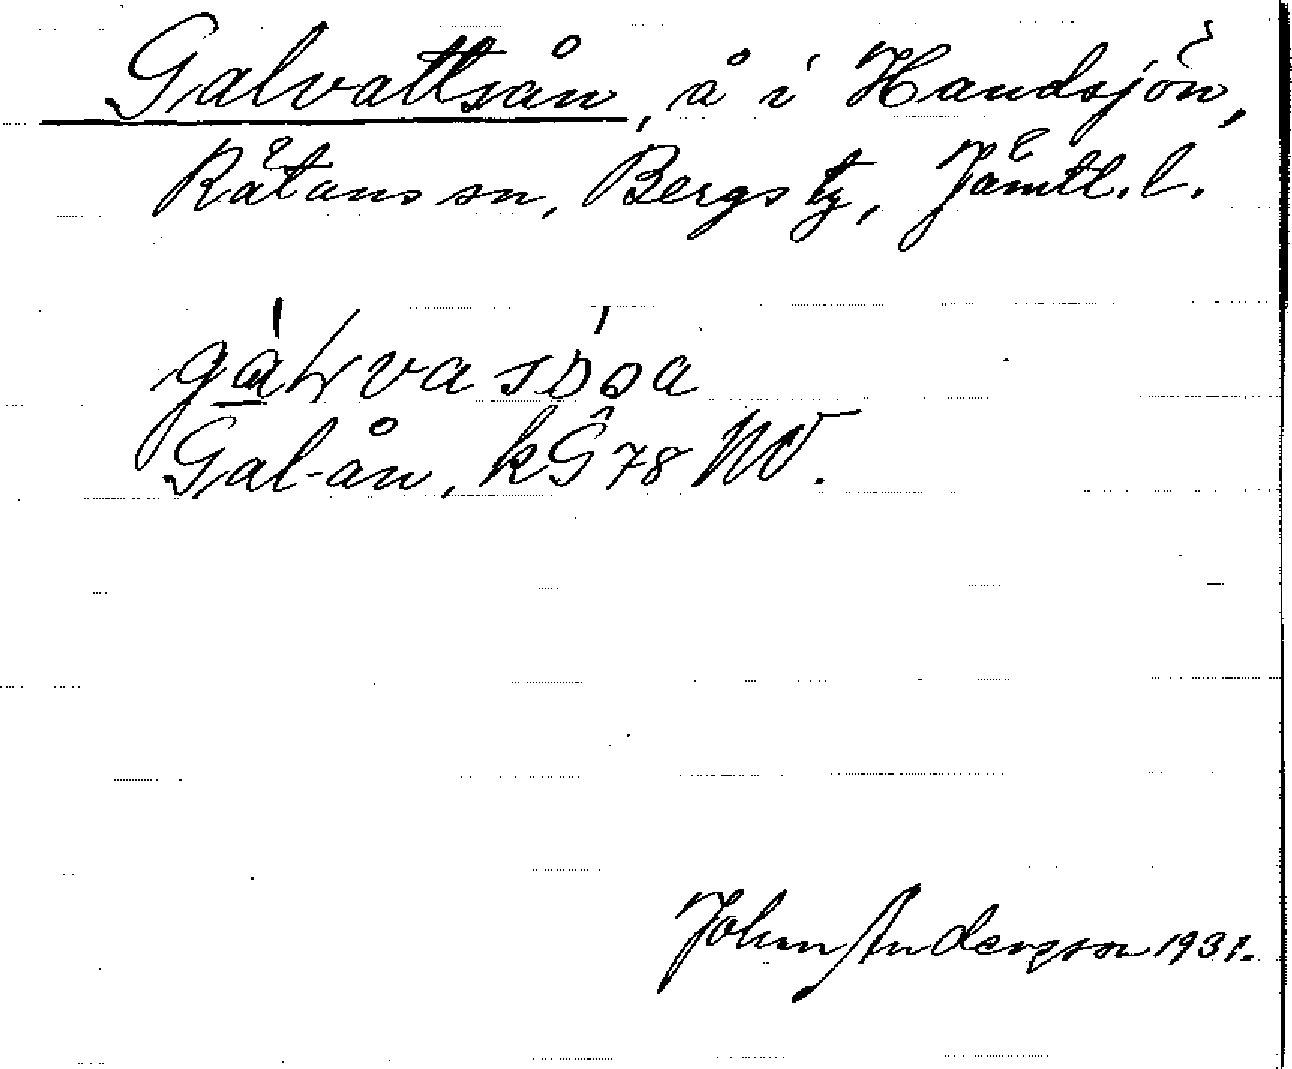 Galvattsån, å i Handsjön,
Rätans sn, Bergs tg, Jämtl. l.
Gal-ån, kG 78 NV.
John Andersson 1931.